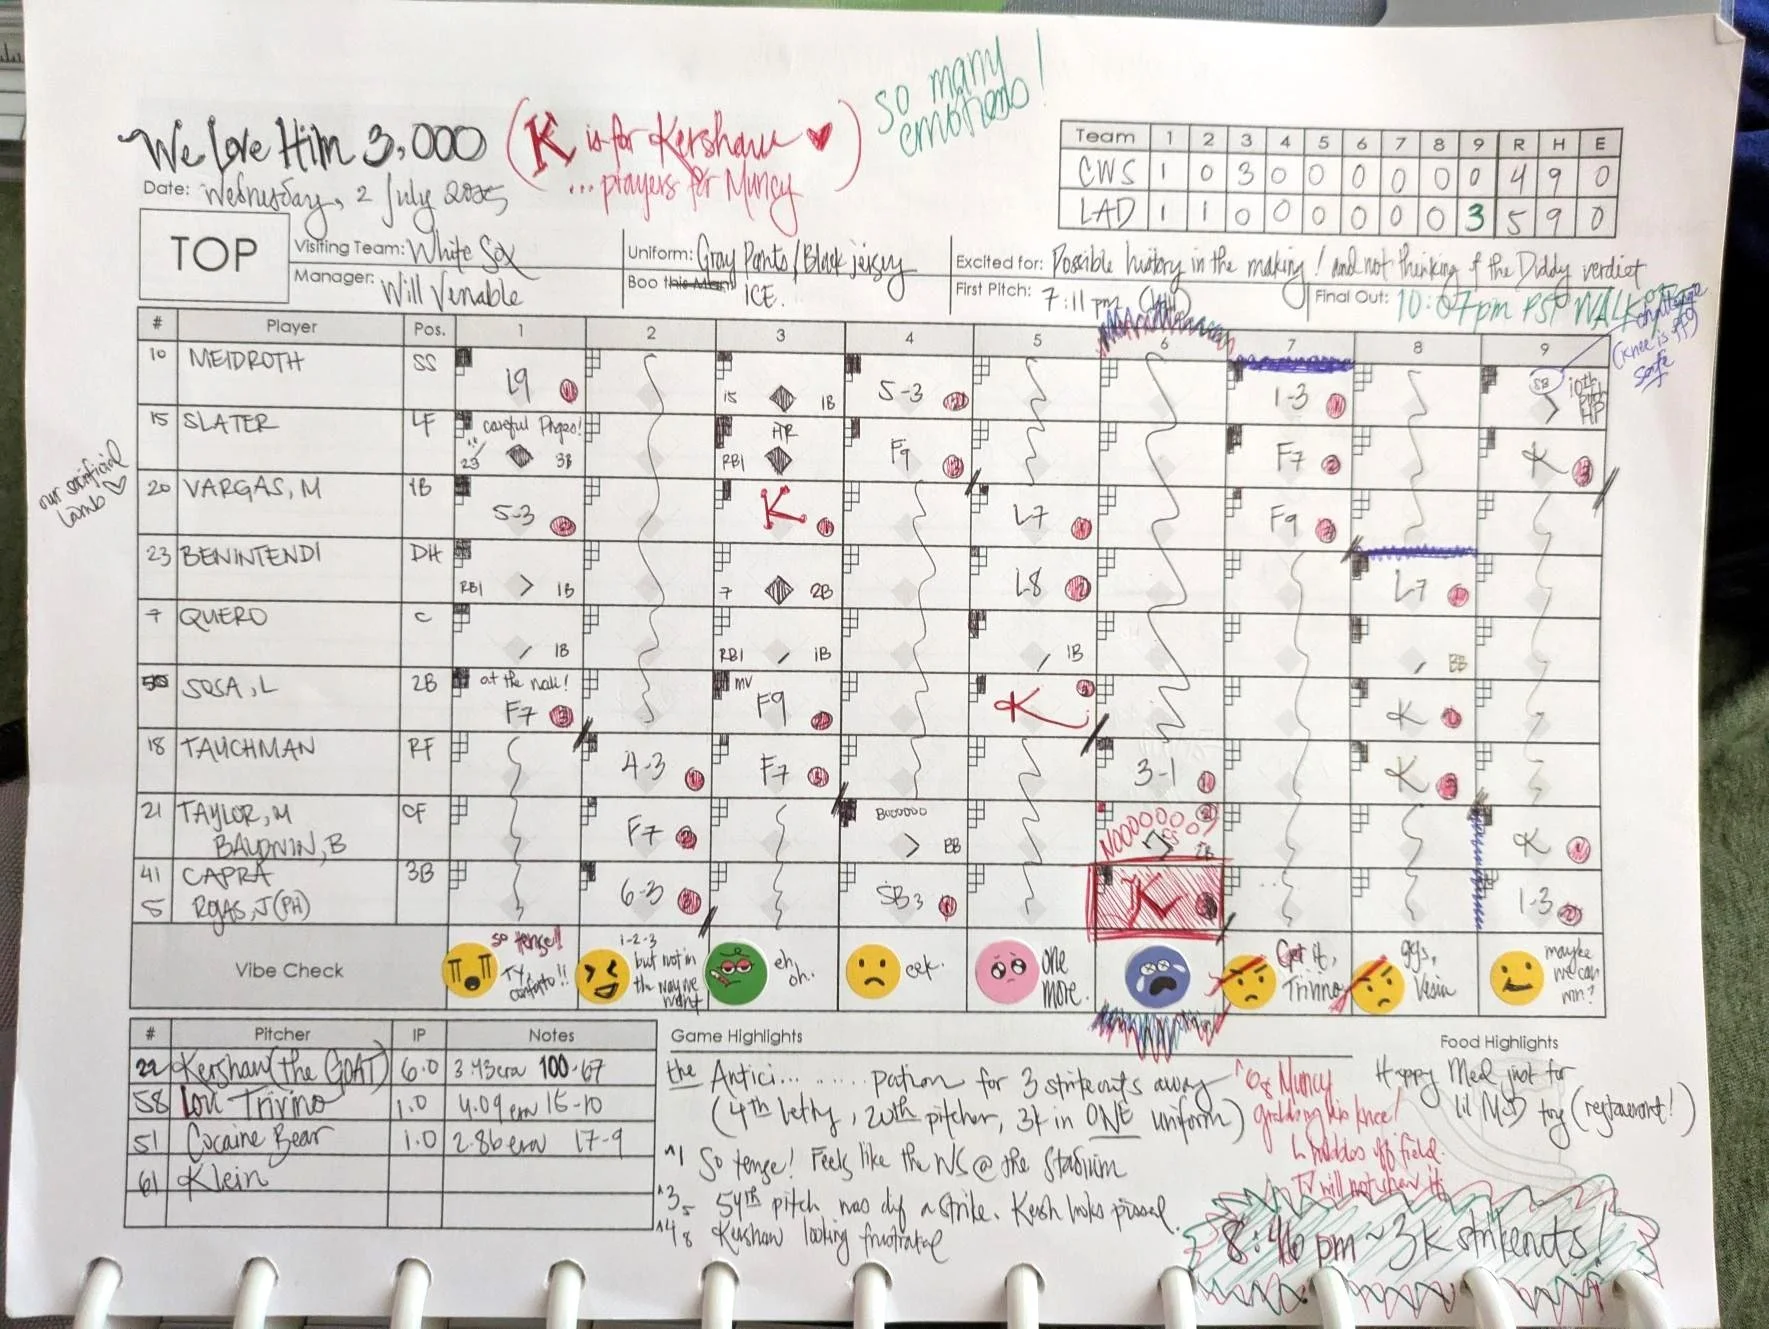 We Love Him 3,000 (K is for Kershaw ♥
... prayers for Muncy)
so many
emotions!
Date: Wednesday, 2 July 2025
Team 1 2 3 4 5 6 7 8 9 R H E
CWS 1 0 3 0 0 0 0 0 0 4 9 0
LAD 1 1 0 0 0 0 0 0 3 5 9 0
TOP
Visiting Team: White Sox
Uniform: Gray Pants/Black jersey
Excited for: Possible history in the making! and not thinking of the Diddy verdict
Manager: Will Venable
Boo this Man! ICE.
First Pitch: 7:11 pm
Final Out: 10:07pm PST WALK
challenge
(knee is
safe
# Player Pos. 1 2 3 4 5 6 7 8 9
10 MEIDROTH SS L9 1 15 1B 5-3 2 1-3 1 SB 10th pitch HP
15 SLATER LF careful Pages! 23 3B HR RBI F9 3 F7 2 K 3
our sacrificial
lamb ♡
20 VARGAS, M 1B 5-3 2 K 1 L7 1 F9 3
23 BENINTENDI DH RBI 1B 7 2B L8 2 L-7 1
7 QUERO C 1B RBI 1B 1B BB
50 SOSA, L 2B at the wall! F7 3 MV F9 2 K 3 K 2
18 TAUCHMAN RF 4-3 1 F7 3 3-1 1 K 3
21 TAYLOR, M CF F7 2 Booooooo BB NOOOOOO! 2 2B K 1
BALDWIN, B
41 CAPRA 3B 6-3 3 SB3 1 K 1-3 2
5 ROJAS, J (PH)
Vibe Check
so tense!!
TY,
Conforto!!
1-2-3
but not in
the way we
want
eh,
oh.
eek.
one
more.
Get it,
Trivino
ggs,
Vesia
maybe
we can
win?
# Pitcher IP Notes
22 Kershaw (the GOAT) 6.0 3.43era 100-67
58 Lou Trivino 1.0 4.09 era 15-10
51 Cocaine Bear 1.0 2.86 era 17-9
61 Klein
Game Highlights
the Antici... ...... pation for 3 strikeouts away
(4th lefty, 20th pitcher, 3k in ONE uniform)
^1 So tense! Feels like the WS @ the Stadium
^3 5 54th pitch was def a strike. Kersh looks pissed.
^4 8 Kershaw looking frustrated
^6 8 Muncy
grabbing his knee!
L hobbles off field.
TV will not show it.
Food Highlights
Happy Meal just for
lil McD toy (restaurant!)
8:46 pm ~ 3K strikeouts!